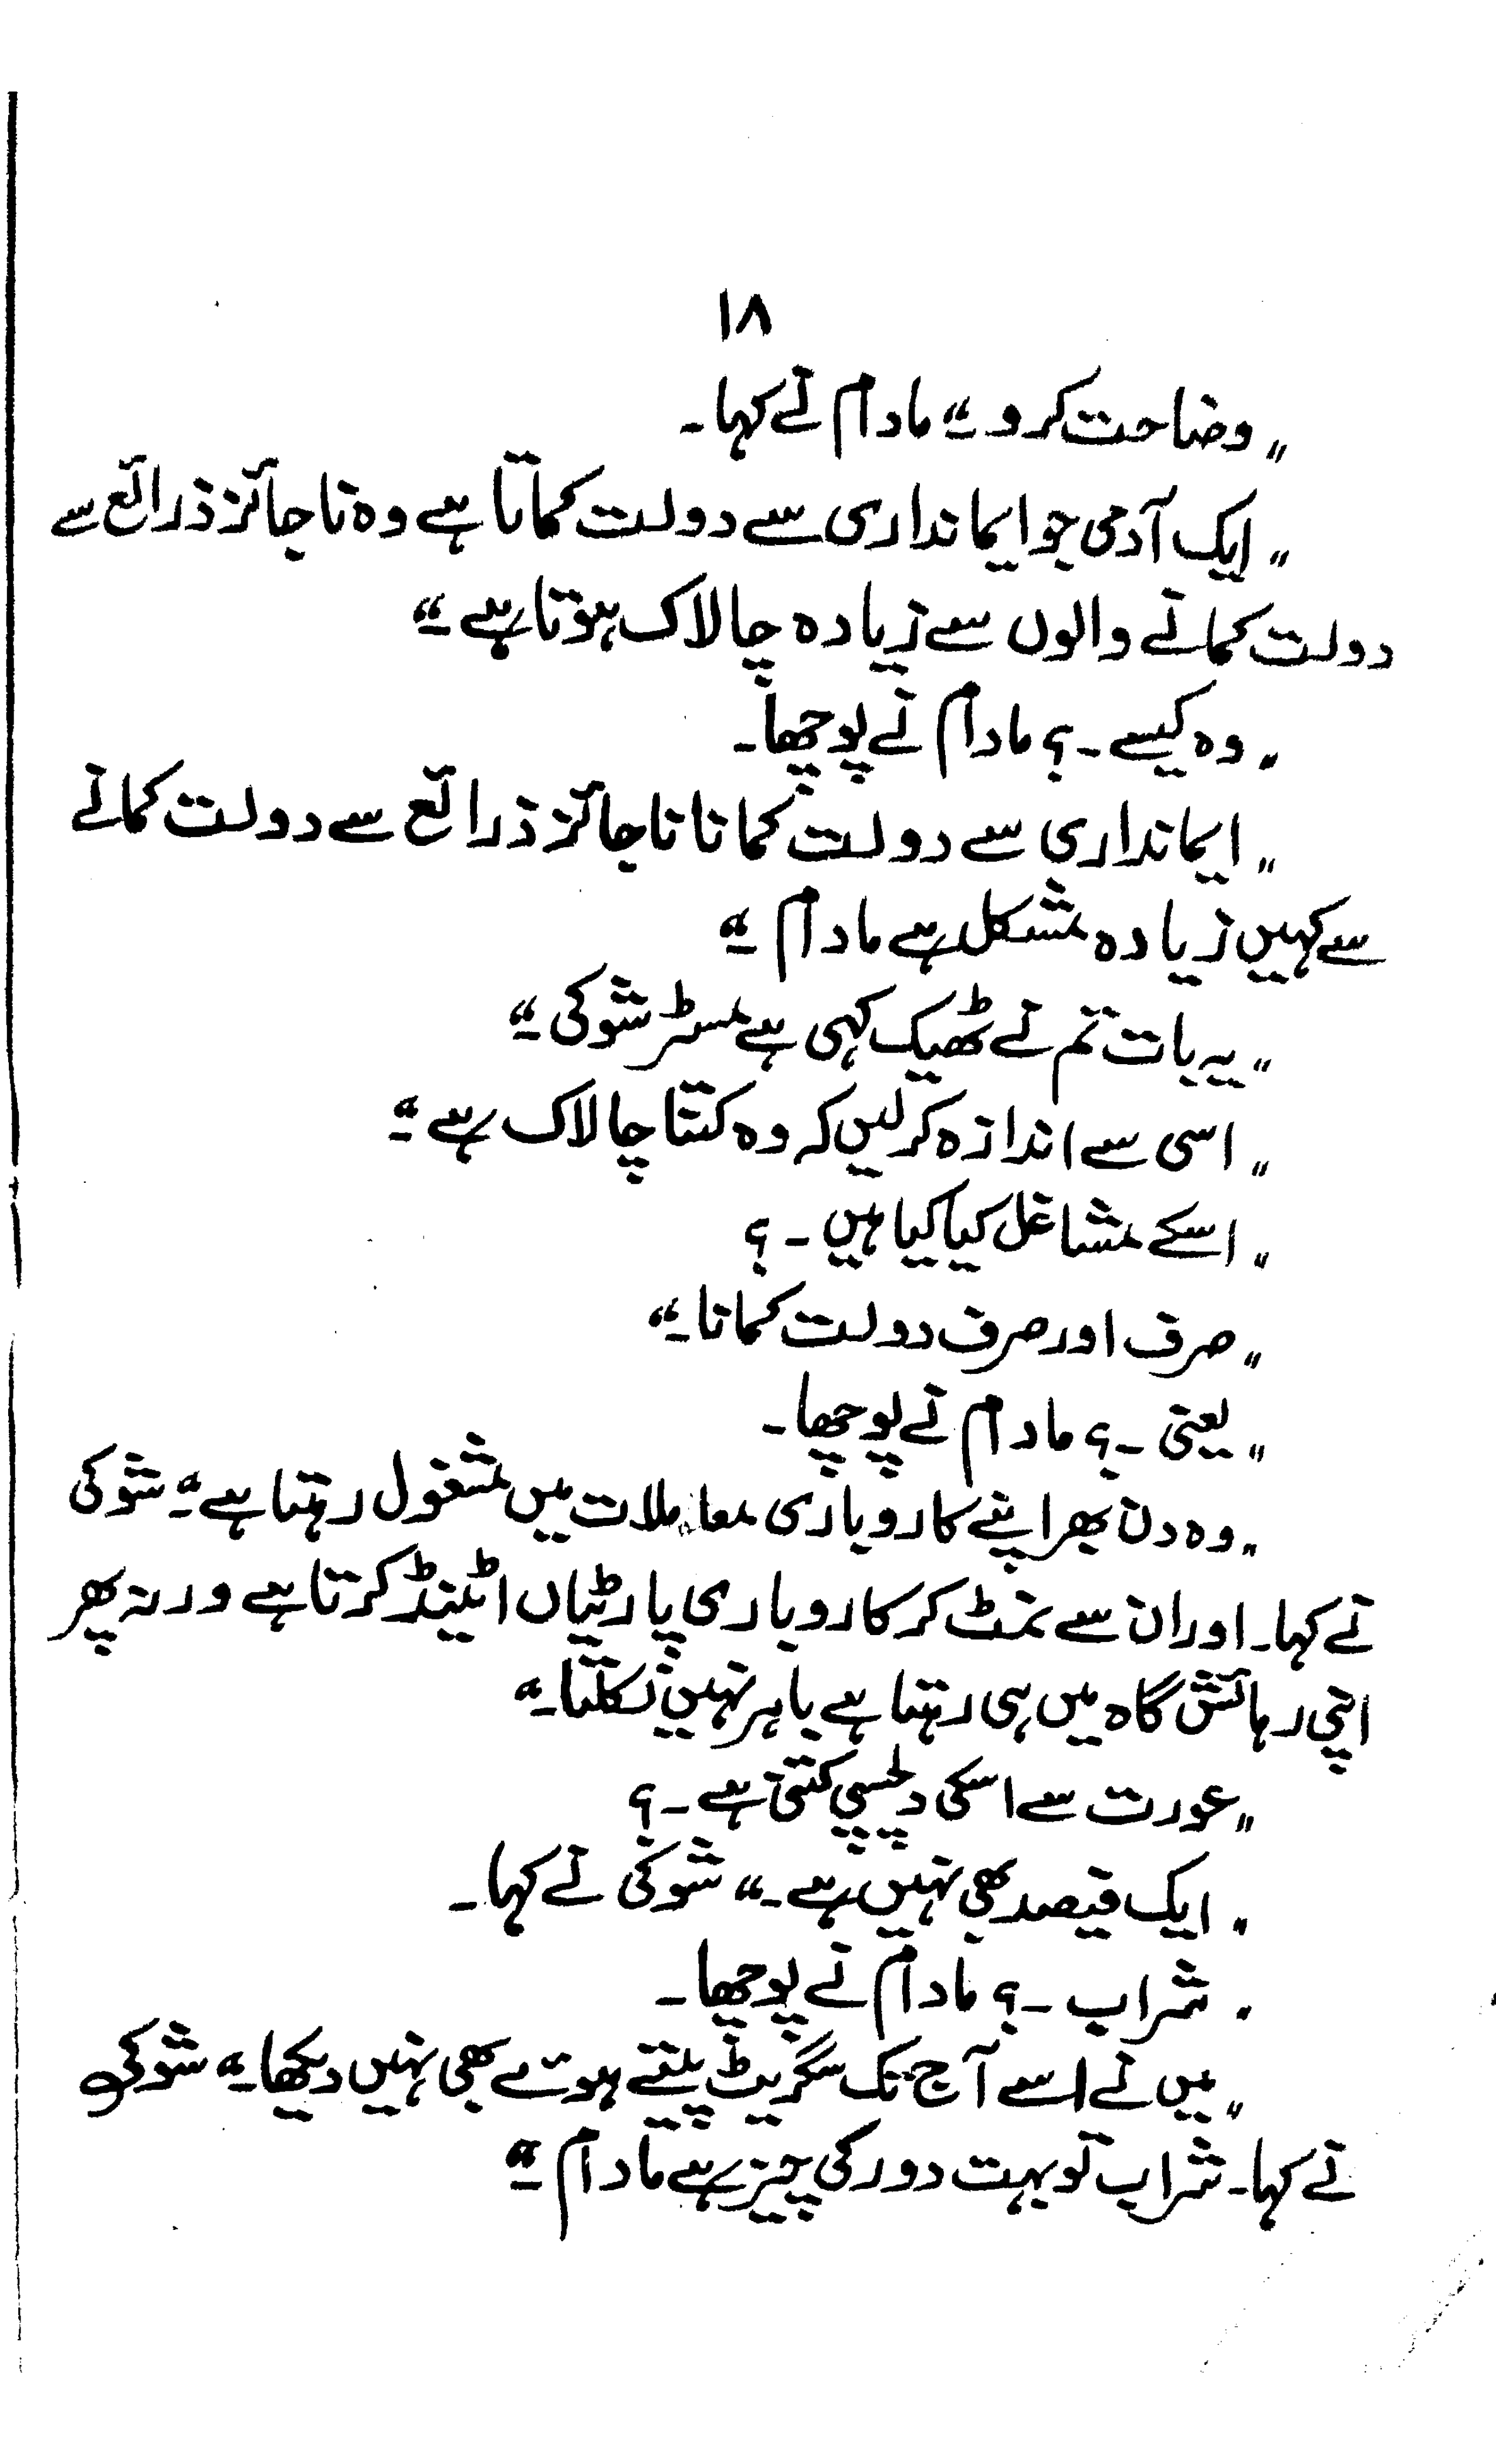 ۱۸
"وضاحت کرو۔" مادام نے کہا۔
"ایک آدمی جو ایمانداری سے دولت کماتا ہے وہ ناجائز ذرائع سے
دولت کمانے والوں سے زیادہ چالاک ہوتا ہے۔"
"وہ کیسے۔؟ مادام نے پوچھا۔
"ایمانداری سے دولت کمانا ناجائز ذرائع سے دولت کمانے
سے کہیں زیادہ مشکل ہے مادام۔"
"یہ بات تم نے ٹھیک کہی ہے مسٹر شوکی۔"
"اسی سے اندازہ کرلیں کہ وہ کتنا چالاک ہے۔"
"اسکے مشاغل کیا کیا ہیں۔؟
"صرف اور صرف دولت کمانا۔"
"یعنی۔؟ مادام نے پوچھا۔
"وہ دن بھر اپنے کاروباری معاملات میں مشغول رہتا ہے۔" شوکی
نے کہا۔ اور ان سے نمٹ کر کاروباری پارٹیاں اٹینڈ کرتا ہے ورنہ پھر
اپنی رہائش گاہ میں ہی رہتا ہے باہر نہیں نکلتا۔"
"عورت سے اسکی دلچسپی کتنی ہے۔؟
"ایک فیصد بھی نہیں ہے۔" شوکی نے کہا۔
"شراب۔؟ مادام نے پوچھا۔
"میں نے اسے آج تک سگریٹ پیتے ہوئے بھی نہیں دیکھا۔" شوکی
نے کہا۔ شراب تو بہت دور کی چیز ہے مادام۔"